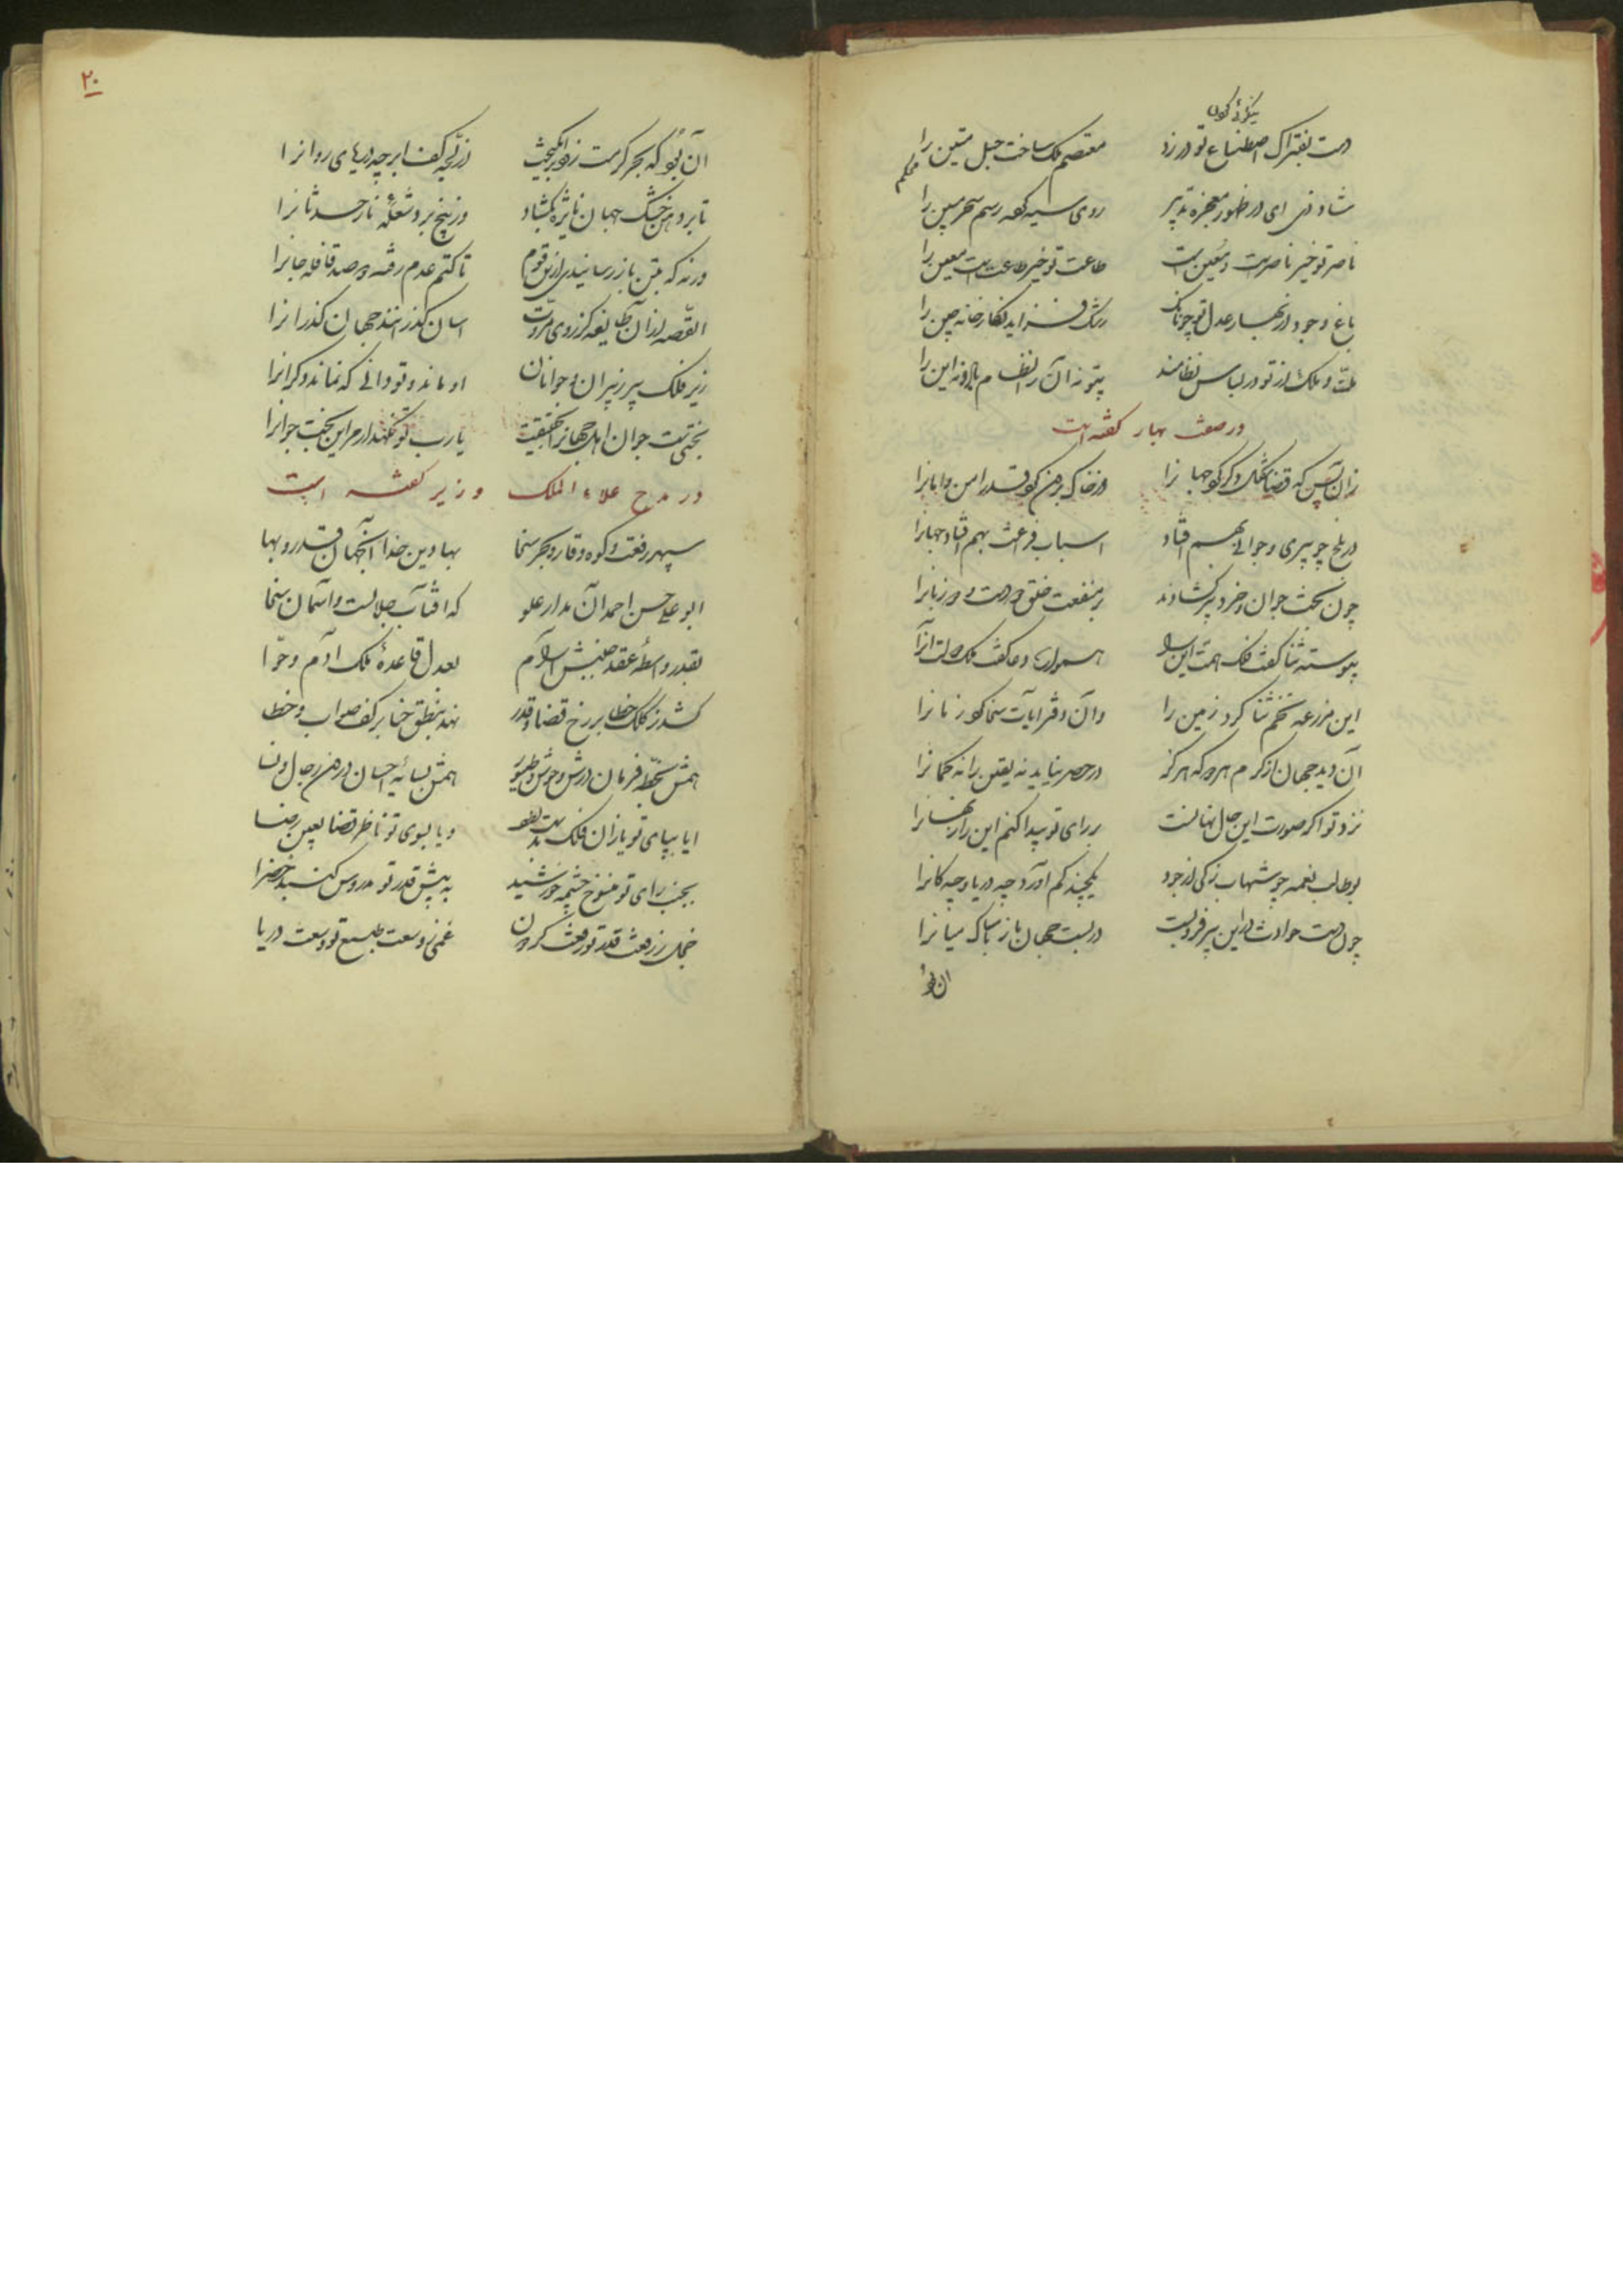 نیکوئی کردن
دست بفتراک اصطناع تو در زد معتصم ملک ساخت حبل متین را
محکم
شاد زی ای در ظهور معجزه تدبیر روی سیه کرده رسم سحر مبین را
ناصر تو خیر ناصرست و معین است طاعت تو خیر طاعت است معین را
باغ وجود از بهار عدل تو چونانک رشک فزاید نگارخانه چین را
ملت و ملک از تو در لباس نظامند بیتو نه آن را نظام بادا و نه این را
در صفت بهار گفته است
زان پس که قضا شکل دگر کرد جهانرا وز خاک برون کرد قدر امن و امانرا
در بلخ چو پیری و جوانی بهم افتاد اسباب فراغت بهم افتاد جهانرا
چون بخت جوان و خرد پیر گشادند بر منفعت خلق در دست و زبانرا
پیوسته ثنا گفت فلک همت این را همواره دعا گفت ملک دولت آنرا
این مزرعه تخم ثنا کرد زمین را وان دفتر آیات سخا کرد زمانرا
آن دید جهان از کرم هر دو که هرگز در حصر نیاید نه یقین را نه گمانرا
نزد تو اگر صورت این حال نهانست بر رای تو پیدا کنم این راز نهانرا
بوطالب نعمه چو شهاب زکی از جود یکچند کم آورد چه دریا و چه کانرا
چون دست حوادث در این هر فرو بست دربست جهان باز بامساک میانرا
ان بود
۲۰
آن بود که بحر کرمت زود برانگیخت از لجه کف ابر چو دریای روانرا
تا بر در خشک جهان نایژه بگشاد وز بیخ ببرد شعله نار حدثانرا
ورنه که بتن باز رسانیدی ازین قوم تا کتم عدم رفته دو صد قافله جانرا
القصه از آن طایفه کز روی مروت آسان گذرانند جهان گذرانرا
زیر فلک پیر ز پیران و جوانان او ماند و تو دانی که نماند دگرانرا
بختیست جوان اهل جهانرا بحقیقت یارب تو نگهدار مر این بخت جوانرا
در مدح علاء الملک وزیر گفته است
سپهر رفعت و کوه وقار و بحر سخا بهاء دین خدا آنجهان قدر و بها
ابو علی حسن احمد آن مدار علو که آفتاب جلالست و آسمان سخا
بقدر واسطه عقد جنبش و آرام بعدل قاعده ملک آدم و حوا
کشد ز کلک خطا بر رخ قضا و قدر نهد بنطق حنا بر کف صواب و خطا
همش بخطه فرمان درش وحوش و طیور همش بسایه احسان درون رجال و نسا
ایا بپای تو یازان فلک بدست و یا بسوی تو ناظر قضا بعین رضا
بجنب رای تو منسوخ چشمه خورشید به پیش قدر تو مدروس گنبد خضرا
خجل ز رفعت قدر تو رفعت گردون غمی ز وسعت طبع تو وسعت دریا